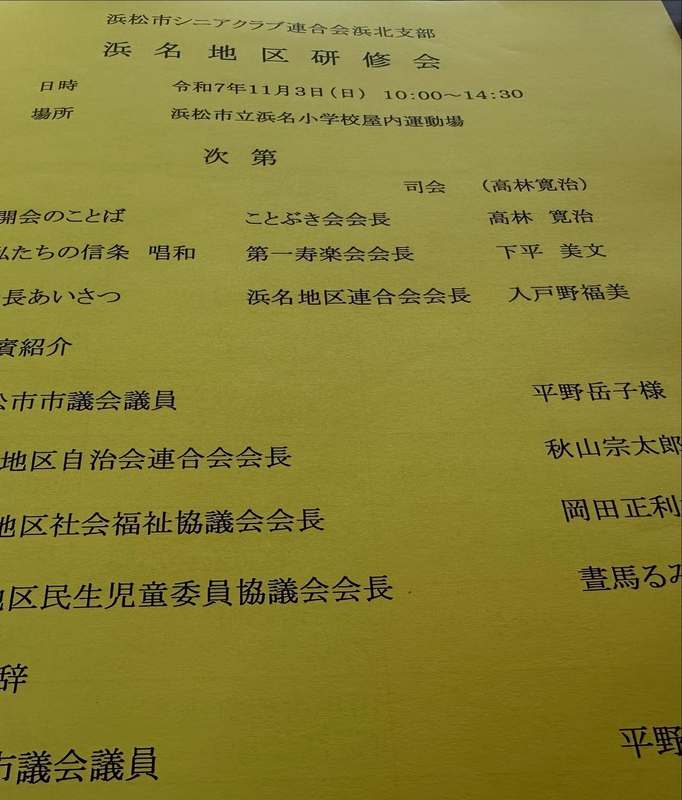 浜松市シニアクラブ連合会浜北支部
浜名地区研修会
日時 令和7年11月3日(日) 10:00~14:30
場所 浜松市立浜名小学校屋内運動場
次第
司会 (高林寛治)
開会のことば ことぶき会会長 高林 寛治
私たちの信条 唱和 第一寿楽会会長 下平 美文
長あいさつ 浜名地区連合会会長 入戸野福美
賓紹介
松市市議会議員 平野岳子様
地区自治会連合会会長 秋山宗太郎
地区社会福祉協議会会長 岡田正利
地区民生児童委員協議会会長 晝馬るみ
辞
市議会議員 平野